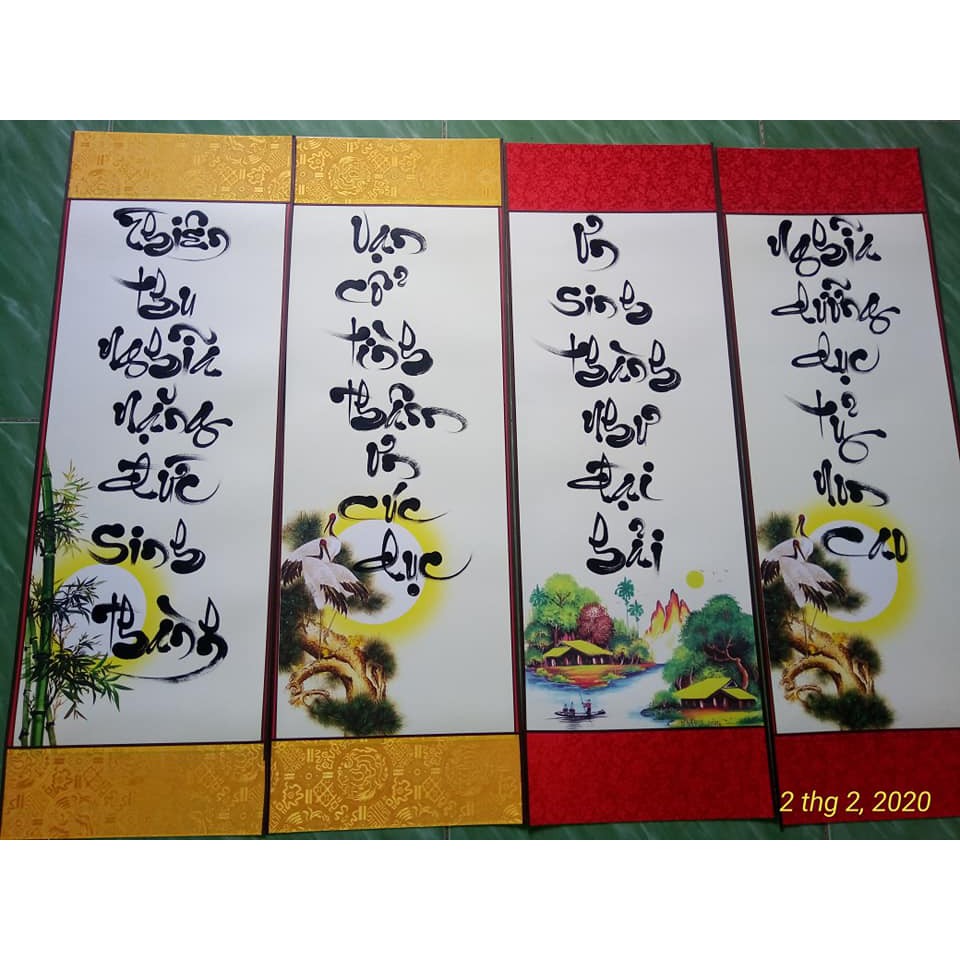 Thiên
thu
nghĩa
nặng
đức
sinh
thành
Vạn
cổ
tình
thâm
ơn
cúc
dục
Ơn
sinh
thành
như
đại
hải
Nghĩa
dưỡng
dục
tỷ
non
cao
2 thg 2, 2020